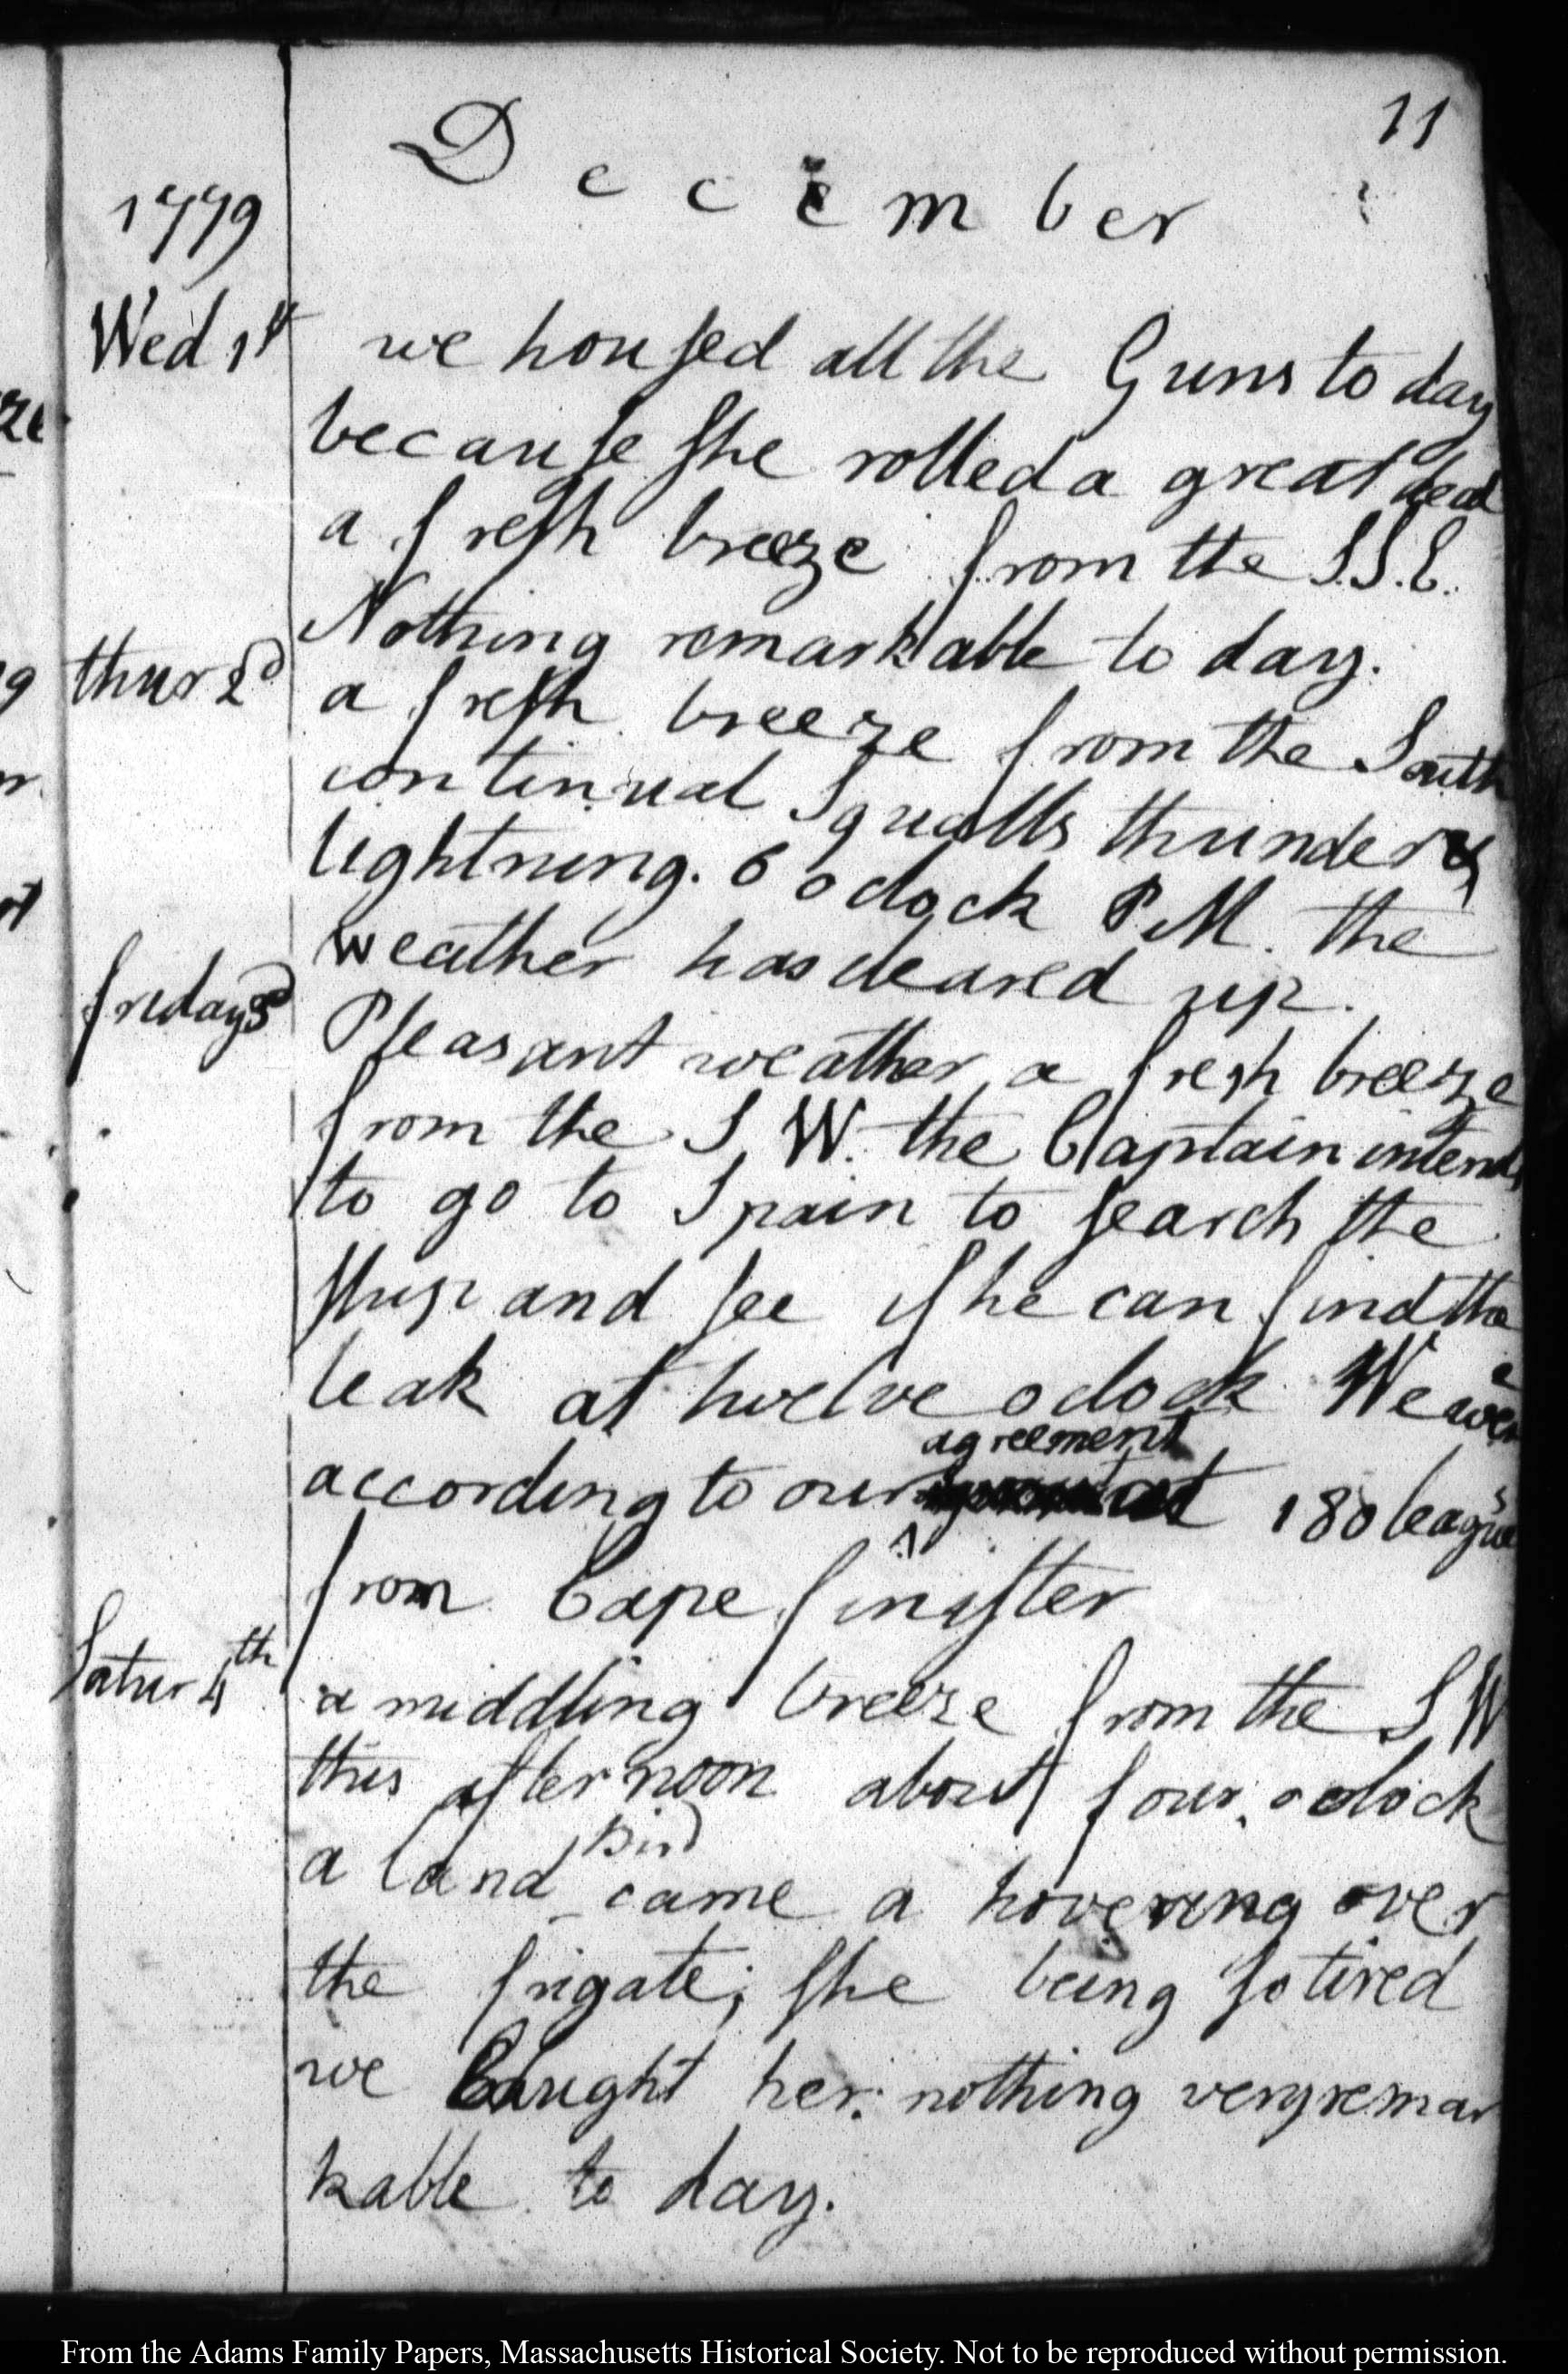 11
December
1779
Wed 1st we housed all the Guns to day
because she rolled a great deal
a fresh breeze from the S.S.E.
Nothing remarkable to day.
thur 2d a fresh breeze from the South
continual Squalls thunder &
lightning. 6 o clock P.M. the
weather has cleared up.
friday 3d Pleasant weather a fresh breeze
from the S W. the Captain intends
to go to Spain to search the
ship and see if he can find the
leak at twelve o clock We were
agreement
according to our 180 leagues
from Cape finister
Satur 4th a middling breeze from the S W
this afternoon about four o clock
Bird
a land came a hovering over
the frigate; she being so tired
we Caught her: nothing very remar
kable to day.
From the Adams Family Papers, Massachusetts Historical Society. Not to be reproduced without permission.